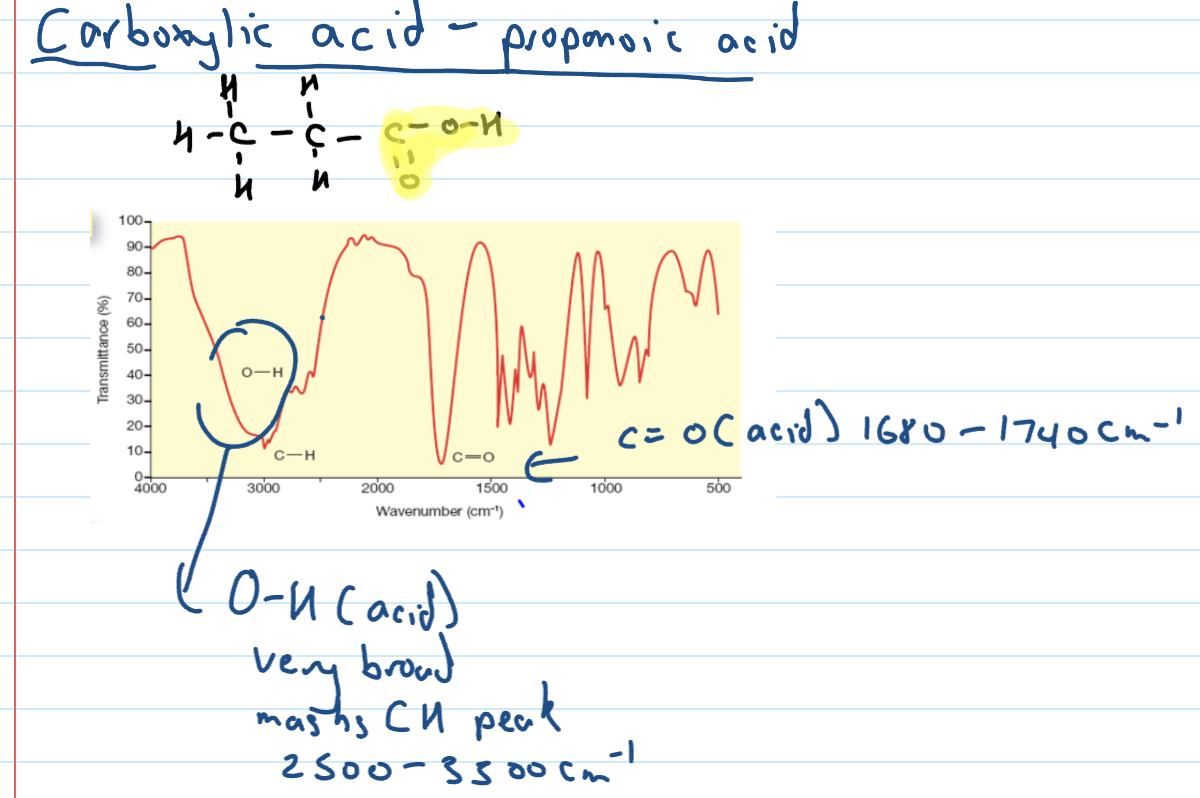 Carboxylic acid - propanoic acid
H H
H - C - C - C - O - H
H H O
100
90
80
70
60
50
40
30
20
10
0
Transmittance (%)
O—H
C—H
C=O
4000 3000 2000 1500 1000 500
Wavenumber (cm⁻¹)
C=O (acid) 1680 - 1740 cm⁻¹
O-H (acid)
very broad
masks CH peak
2500 - 3300 cm⁻¹